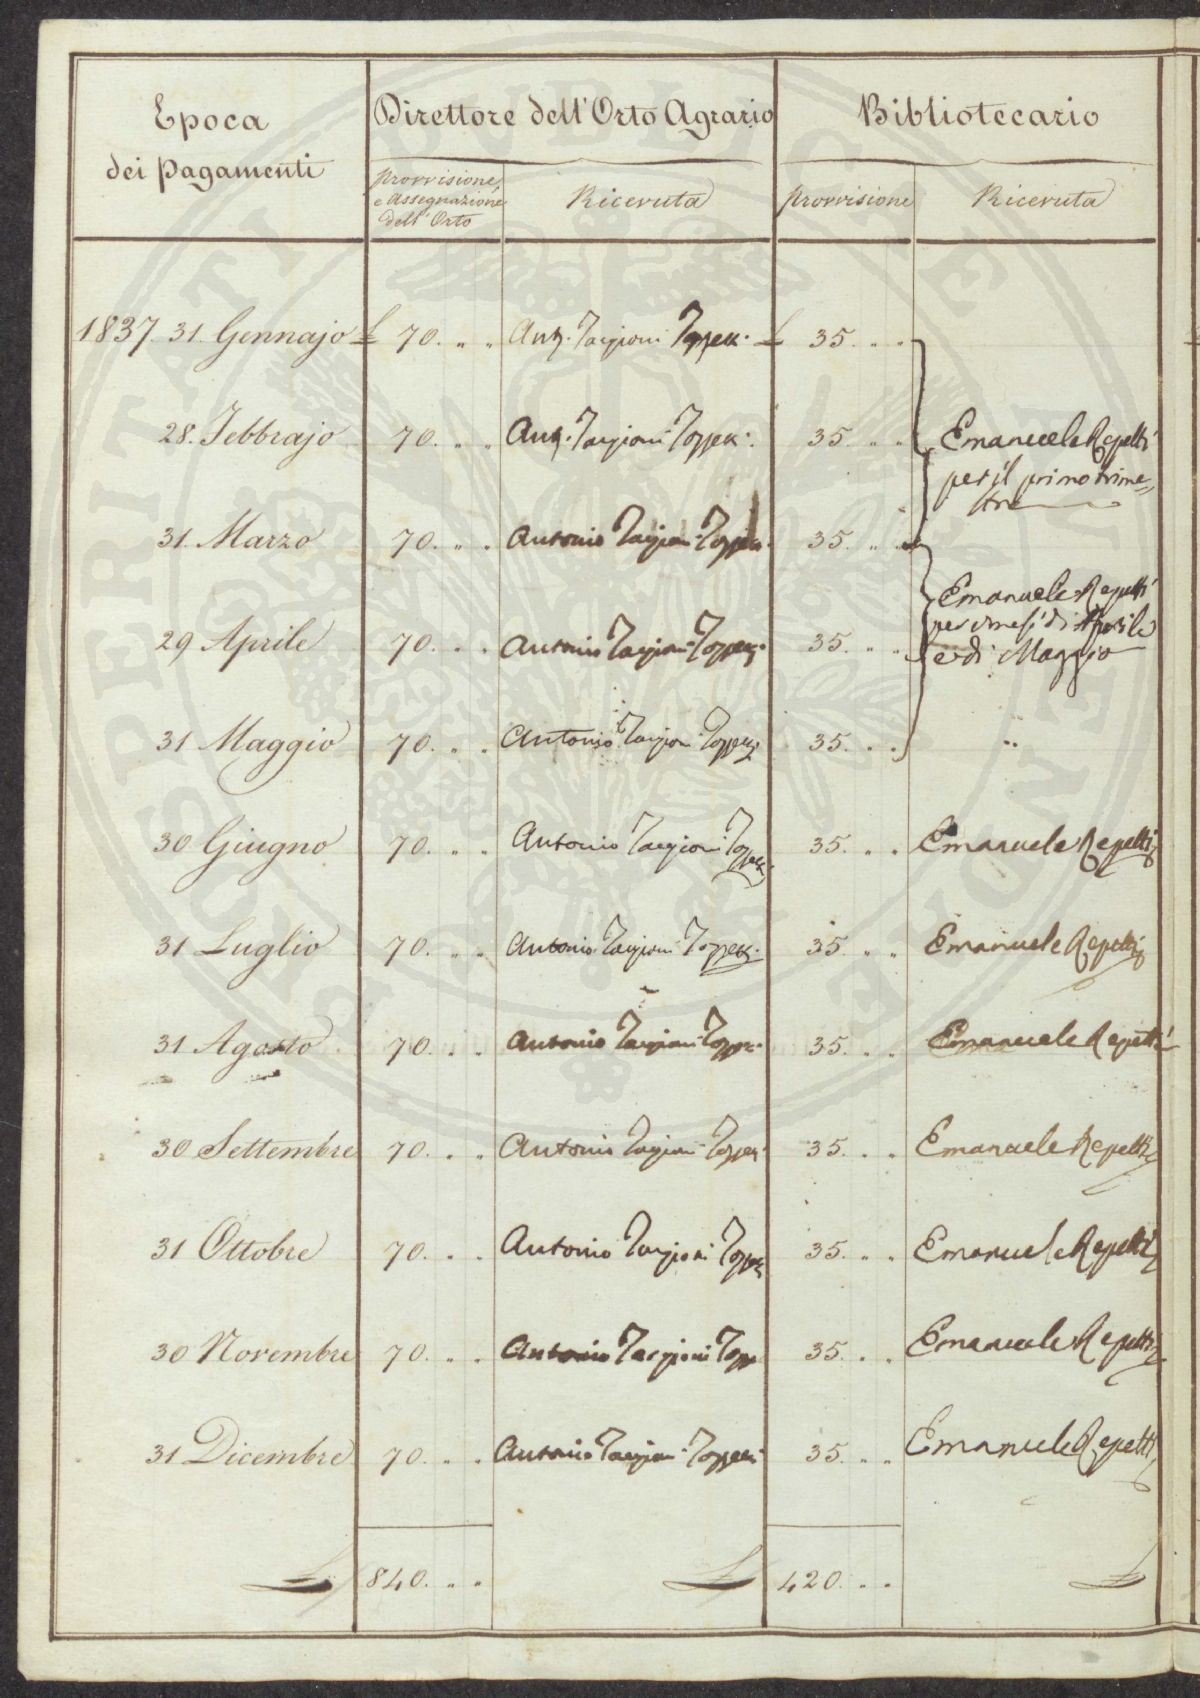 Epoca
dei Pagamenti
Direttore dell'Orto Agrario
Bibliotecario
Provvisione,
e Assegnazione
dell'Orto
Ricevuta
Provvisione
Ricevuta
1837. 31. Gennajo £ 70. " " Ant. Targioni Tozzetti. £ 35. " "
28. Febbrajo 70. " " Ant. Targioni Tozzetti. 35. " " Emanuele Repetti
per il primo trime=
stre
31. Marzo 70. " " Antonio Targioni-Tozzetti. 35. " "
Emanuele Repetti
per i mesi di Aprile
e di Maggio
29 Aprile 70. " " Antonio Targioni-Tozzetti. 35. " "
31 Maggio 70. " " Antonio Targioni Tozzetti 35. " " "
30 Giugno 70. " " Antonio Targioni Tozzetti 35. " " Emanuele Repetti
31 Luglio 70. " " Antonio Targioni Tozzetti. 35. " " Emanuele Repetti
31 Agosto 70. " " Antonio Targioni-Tozzetti. 35. " " Emanuele Repetti
30 Settembre 70. " " Antonio Targioni-Tozzetti. 35. " " Emanuele Repetti
31 Ottobre 70. " " Antonio Targioni Tozzetti 35. " " Emanuele Repetti
30 Novembre 70. " " Antonio Targioni Tozz 35. " " Emanuele Repetti
31 Dicembre 70. " " Antonio Targioni-Tozzetti 35. " " Emanuele Repetti
£ 840. " " £ 420. " " £
PROSPERITATI PUBLICAE